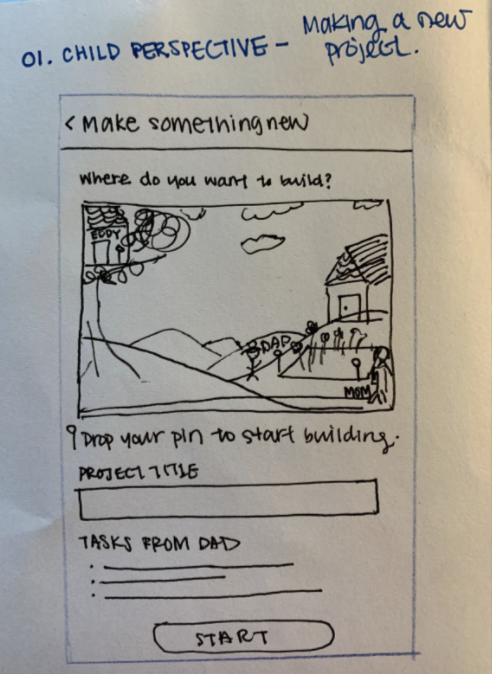 01. CHILD PERSPECTIVE - Making a new project.
< Make something new
Where do you want to build?
EDDY
DAD
MOM
Drop your pin to start building.
PROJECT TITLE
TASKS FROM DAD
START